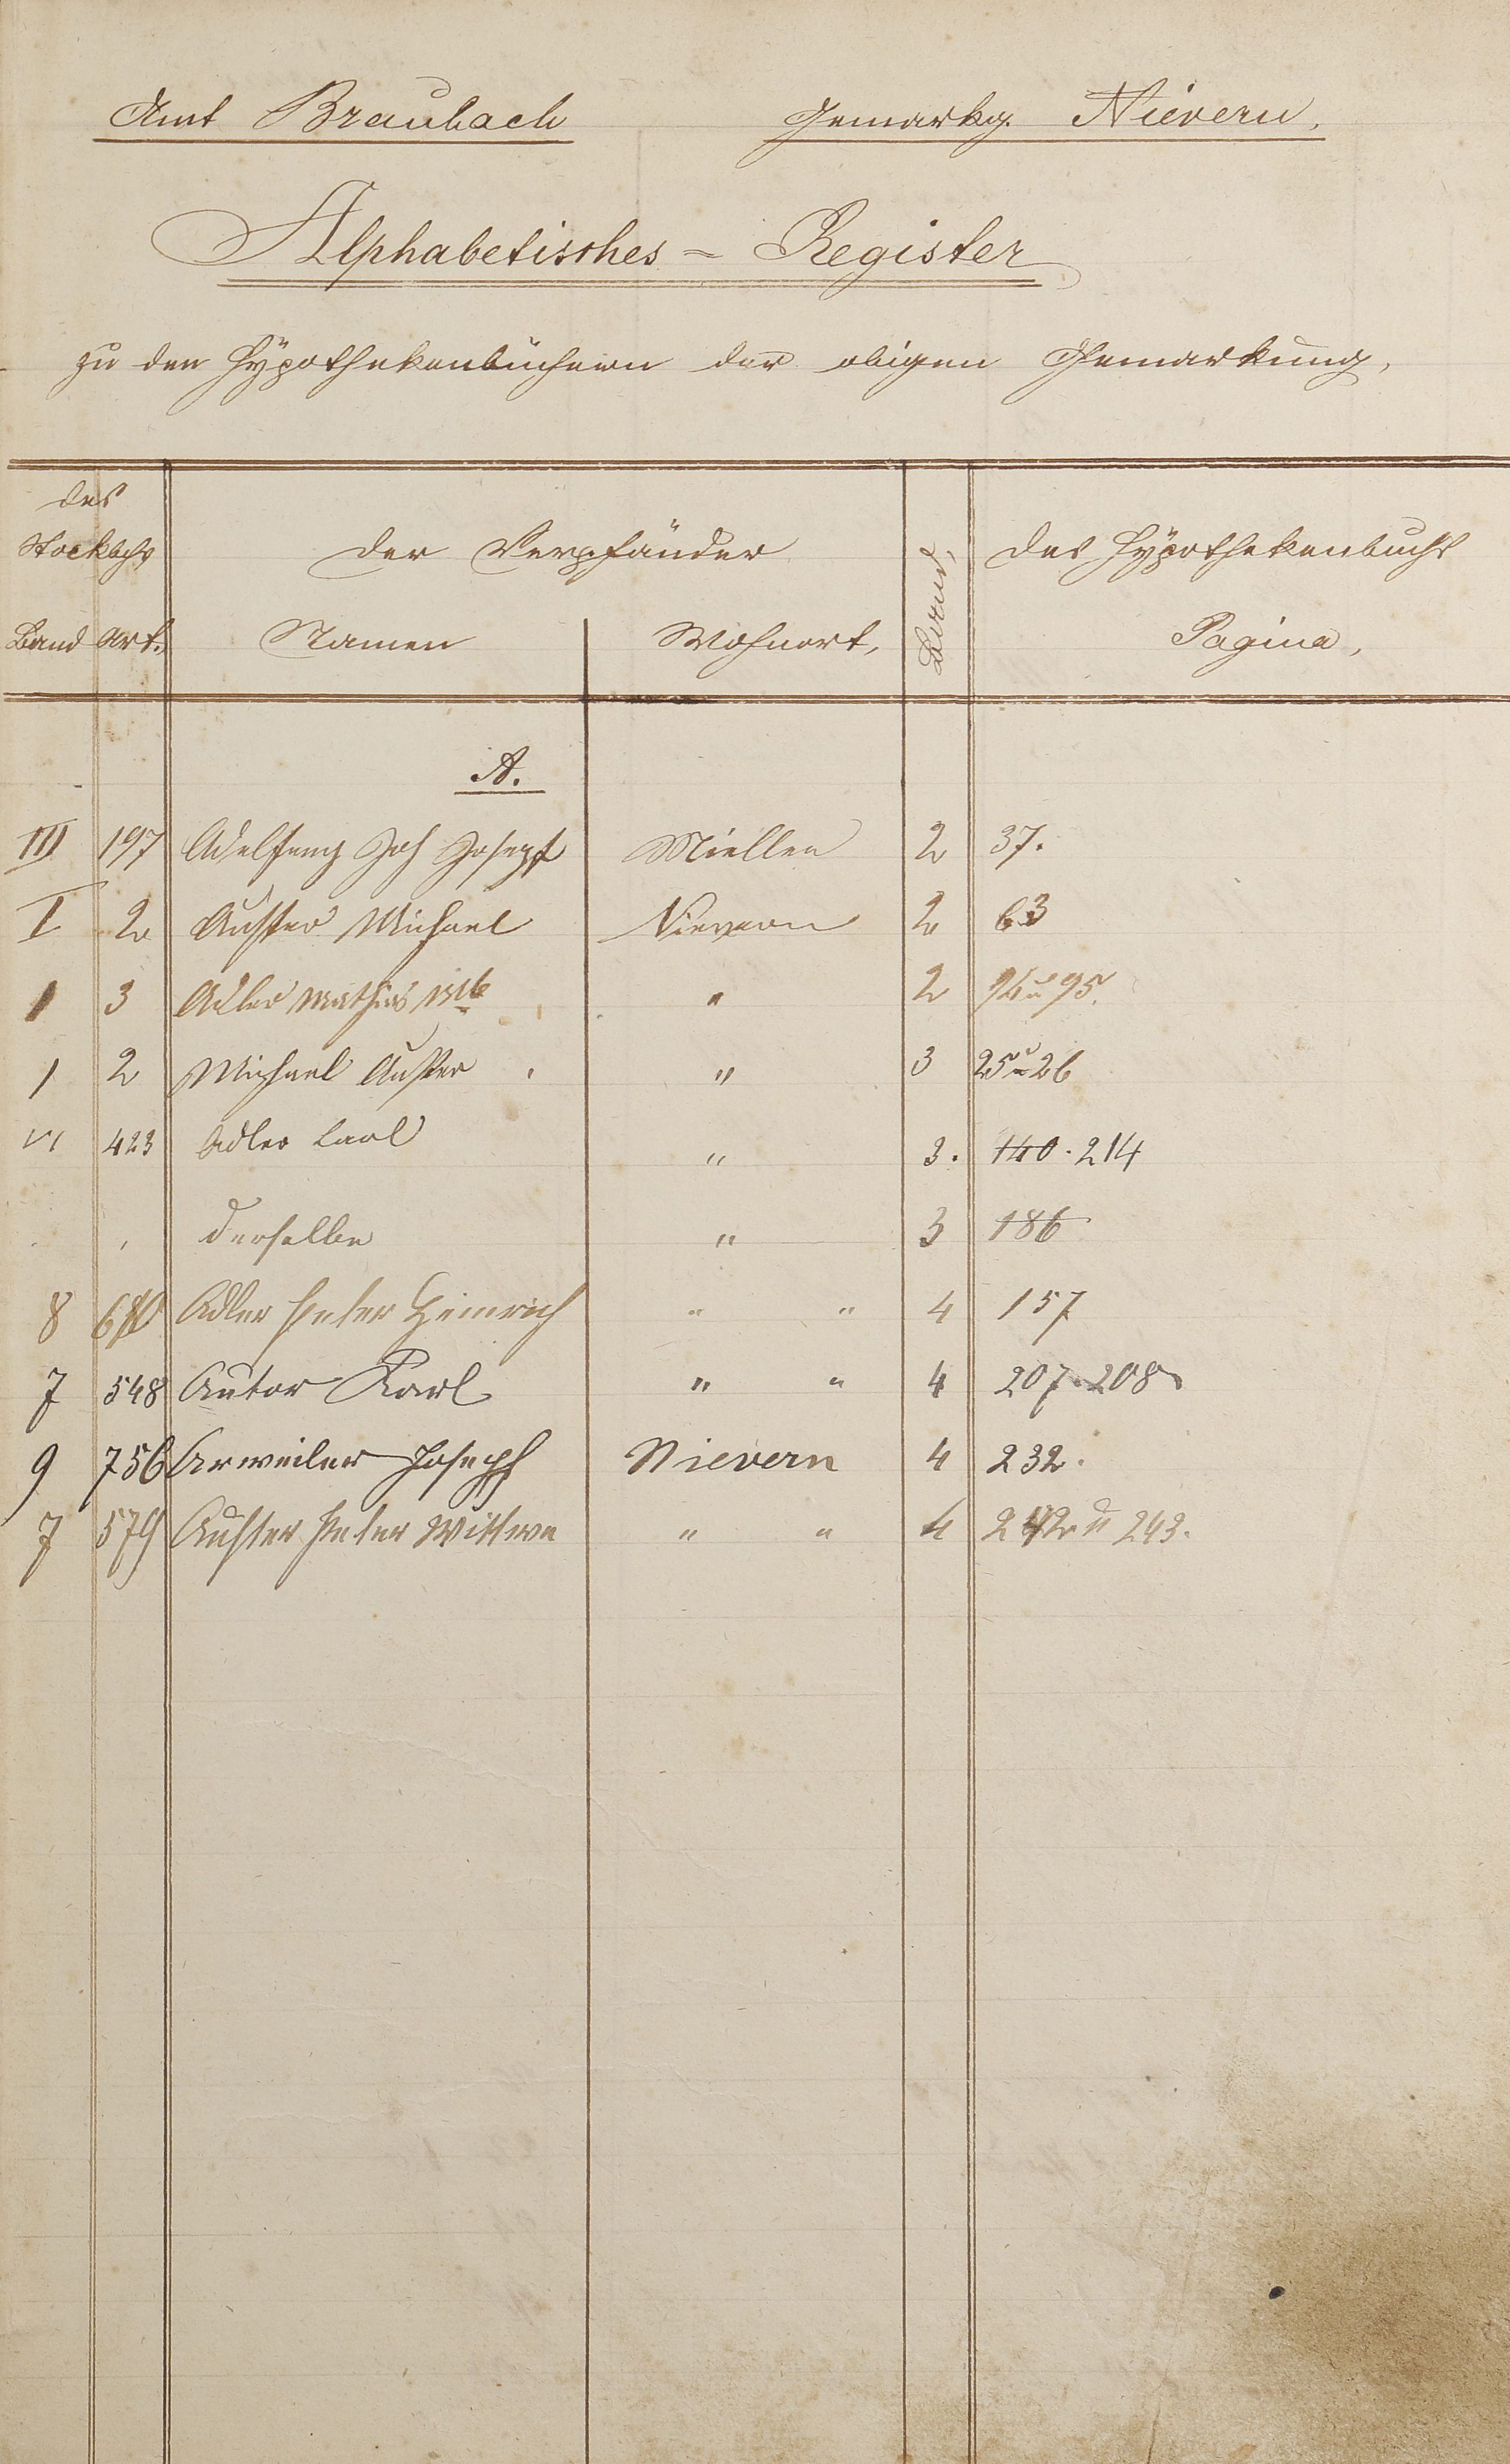 Amt Braubach Gemarkg. Nievern,
Alphabetisches = Register
zu den Hÿpothekenbüchern der obigen Gemarkung,
des
Stockbchs der Verpfänder Band, des Hÿpothekenbuchs
Band Art. Namen Wohnort, Pagina,
A.
III 197 Joh Joseph Miellen 2 37.
I 2 Auster Michael Nievern 2 63
1 3 Adler Mathias " 2 94 u 95.
1 2 Michael Auster " 3 25 u 26
VI 423 Adler Carl " 3. 140 . 214
derselbe " 3 186
8 Adler Peter Heinrich " " 4 157
7 548 Autor Karl " " 4 207. 208
9 756 Arweiler Joseph Nievern 4 232.
7 579 Auster Peter Wittwe " " 4 242 u 243.